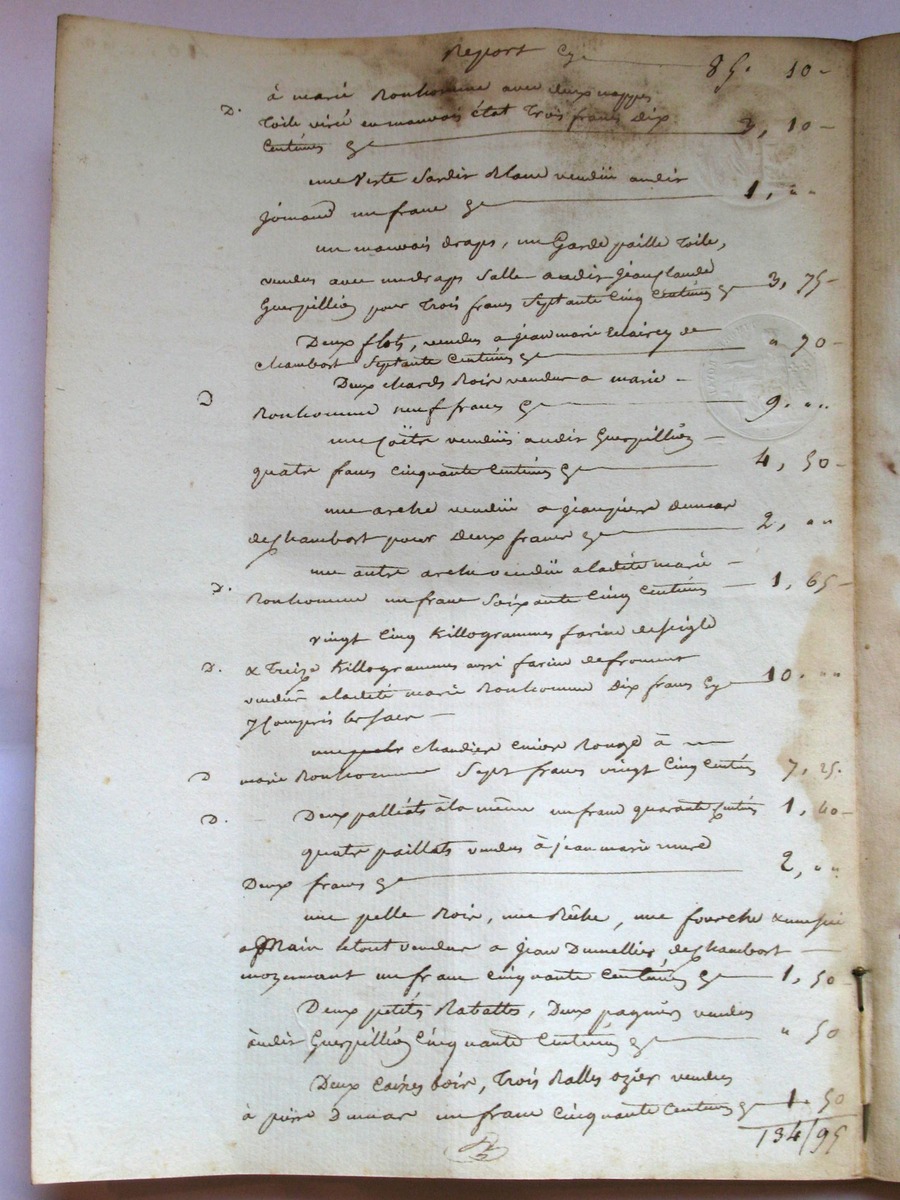 Report Cy 85. 10
D. à marie Bonhomme avec deux nappes
Toile virée en mauvais état Trois francs Dix
Centimes Cy 3, 10
une veste Sardis blanc vendüe audit
un franc Cy 1, " "
un mauvais draps, un Garde paille Toile,
vendus avec un draps Salle audit Jean Claude
Guerpillion pour Trois francs Septante Cinq Centimes Cy 3, 75
Deux flots, vendus a jean marie de
chambost Septante Centimes Cy " 70
Deux chards Boix vendus a marie
D Bonhomme neuf francs Cy 9. " "
une vendüe audit Guerpillion
quatre francs cinquante Centimes Cy 4, 50
une arche vendüe a jean pierre Dumas
de Chambost pour Deux francs Cy 2, " "
une autre arche vendüe a ladite marie
D. Bonhomme un franc Soixante Cinq Centimes 1, 65
vingt Cinq Killogrammes farine de seigle
D. & Treize Killogrammes aussi farine de froment
vendus a ladite marie Bonhomme Dix francs Cy 10. " "
y Compris les sacs
une chaudier cuivre Rouge à
D marie Bonhomme Sept francs vingt Cinq Centimes 7, 25.
D. Deux palliats à la même un franc quarante Centimes 1, 40
quatre paillats vendus à jean marie
Deux francs Cy 2, " "
une pelle Boix, une Bêche, une fourche
a Main le tout vendus a Jean Dumellier de Chambost
moyennant un franc cinquante Centimes Cy 1, 50
Deux petits Rabatts, Deux pagniers vendus
audit Guerpillion Cinquante Centimes Cy " 50
Deux boix, Trois Balles ozier vendus
à pierre Dumas un franc cinquante Centimes Cy 1. 50
134/95